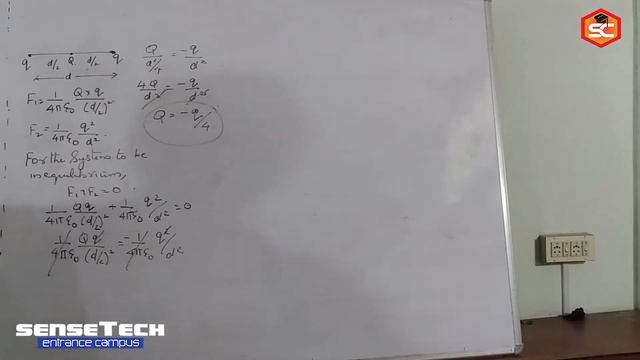 q d/2 Q d/2 q
d
F₁ = 1/4πε₀ Q×q/(d/2)²
F₂ = 1/4πε₀ q²/d²
For the System to be
in equilibrium,
F₁+F₂ = 0
1/4πε₀ Qq/(d/2)² + 1/4πε₀ q²/d² = 0
1/4πε₀ Qq/(d/2)² = -1/4πε₀ q²/d²
Q/d²/4 = -q/d²
4Q/d² = -q/d²
Q = -q/4
SC
SENSETECH
entrance campus